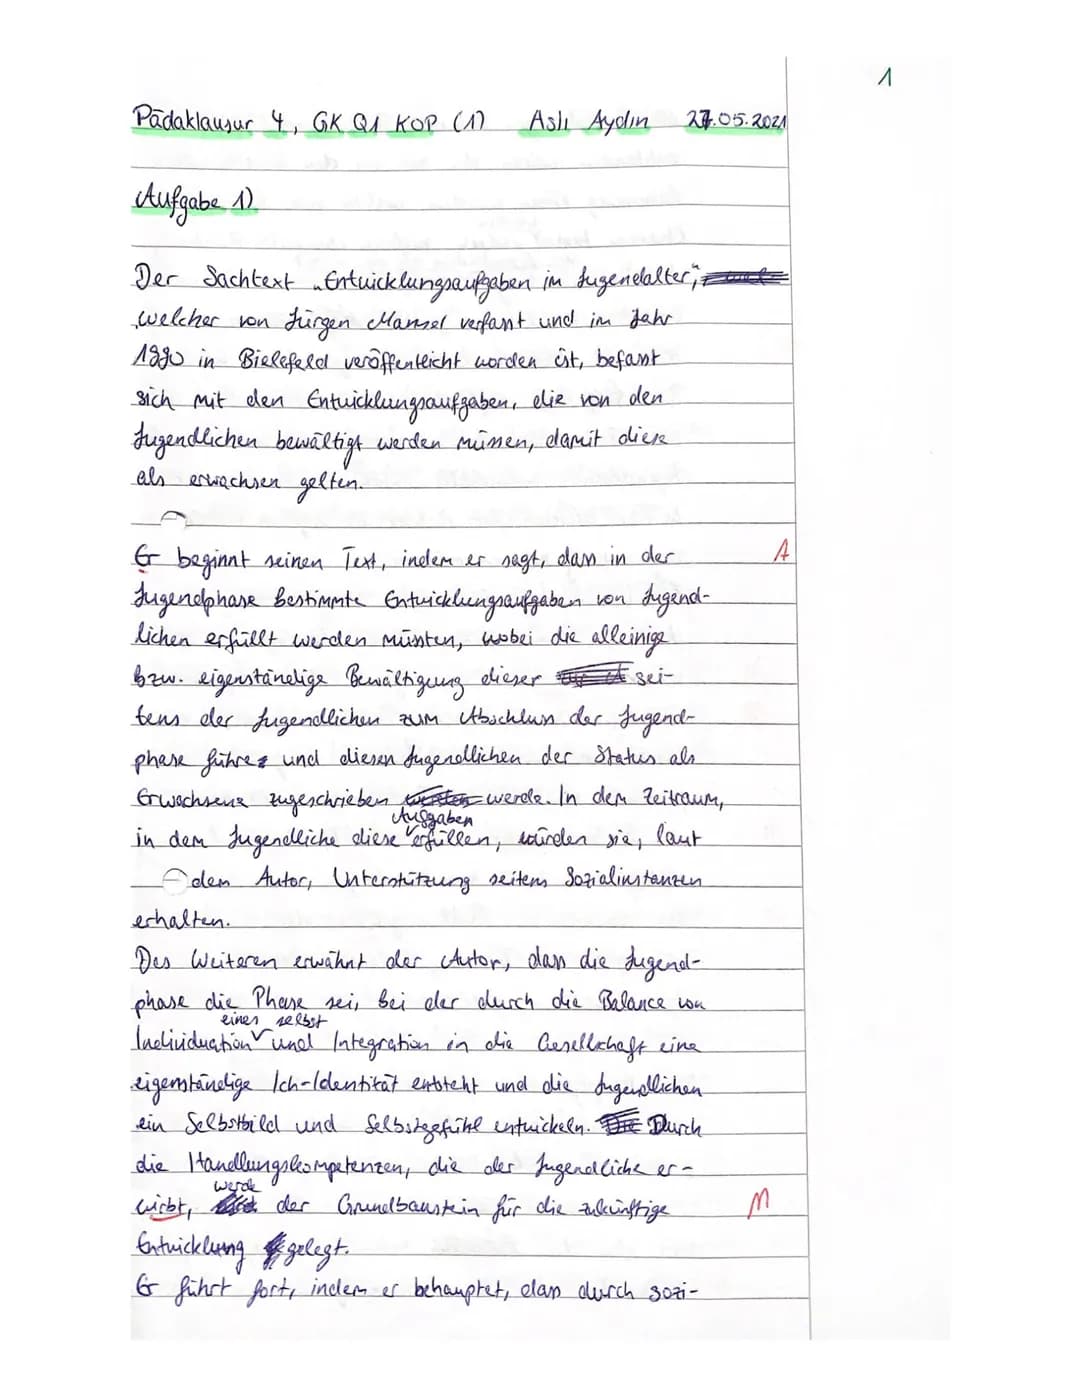 1
Pädaklausur 4, GK Q1 KOP (1) Aslı Aydın 27.05.2021
Aufgabe 1)
Der Sachtext „Entwicklungsaufgaben im Jugendalter",
welcher von Jürgen Mansel verfasst und im Jahr
1990 in Bielefeld veröffentlicht worden ist, befasst
sich mit den Entwicklungsaufgaben, die von den
Jugendlichen bewältigt werden müssen, damit diese
als erwachsen gelten.
Er beginnt seinen Text, indem er sagt, dass in der A
Jugendphase bestimmte Entwicklungsaufgaben von Jugend-
lichen erfüllt werden müssten, wobei die alleinige
bzw. eigenständige Bewältigung dieser sei-
tens der Jugendlichen zum Abschluss der Jugend-
phase führe und diesen Jugendlichen der Status als
Erwachsene zugeschrieben werde. In dem Zeitraum,
Aufgaben
in dem Jugendliche diese erfüllen, würden sie, laut
dem Autor, Unterstützung seitens Sozialinstanzen
erhalten.
Des Weiteren erwähnt der Autor, dass die Jugend-
phase die Phase sei, bei der durch die Balance von
eines selbst
Individuation und Integration in die Gesellschaft eine
eigenständige Ich-Identität entsteht und die Jugendlichen
ein Selbstbild und Selbstgefühl entwickeln. Durch
die Handlungskompetenzen, die der Jugendliche er-
werde
wirbt, der Grundbaustein für die zukünftige M
Entwicklung gelegt.
Er führt fort, indem er behauptet, dass durch sozi-